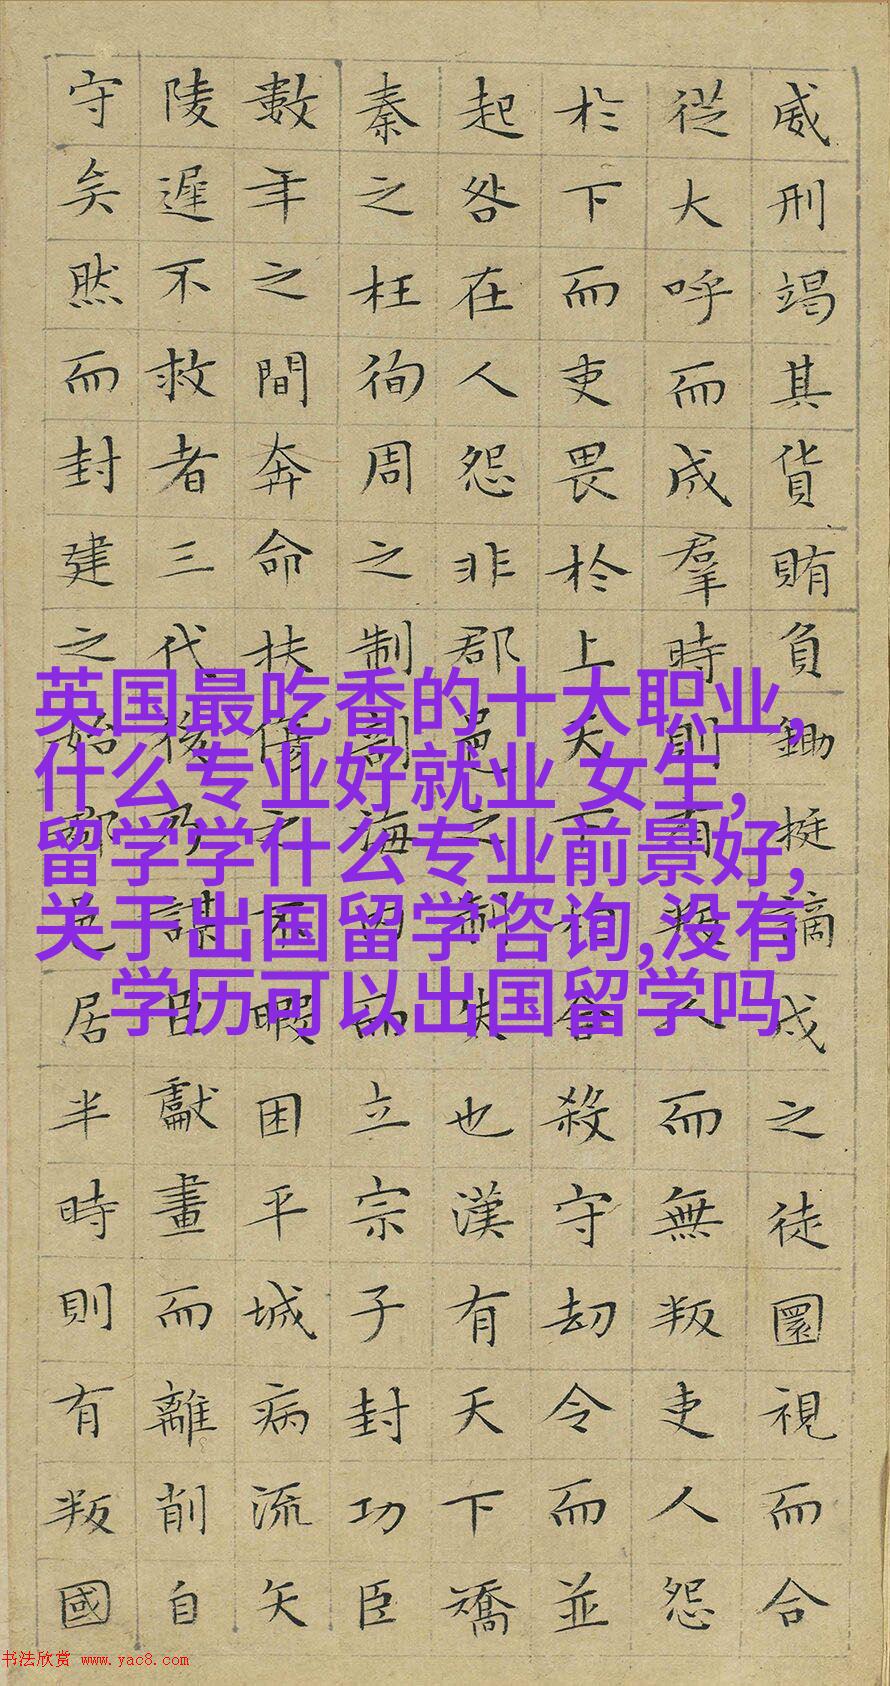 威刑竭其貨賄負鋤挺謫戍之徒圜視而合
從大呼而成羣時則有叛人而無叛吏人怨
於下而吏畏於上天下相合殺守劫令而並
起咎在人怨非郡邑之制失也漢有天下矯
秦之枉徇周之制剖海內而立宗子封功臣
數年之間奔命扶傷之不暇困平城病流矢
陵遲不救者三代後乃謀臣獻畫而離削自
守矣然而封建之始郡邑居半時則有叛國
英国最吃香的十大职业,
什么专业好就业 女生,
留学学什么专业前景好,
关于出国留学咨询,没有
学历可以出国留学吗
书法欣赏 www.yac8.com